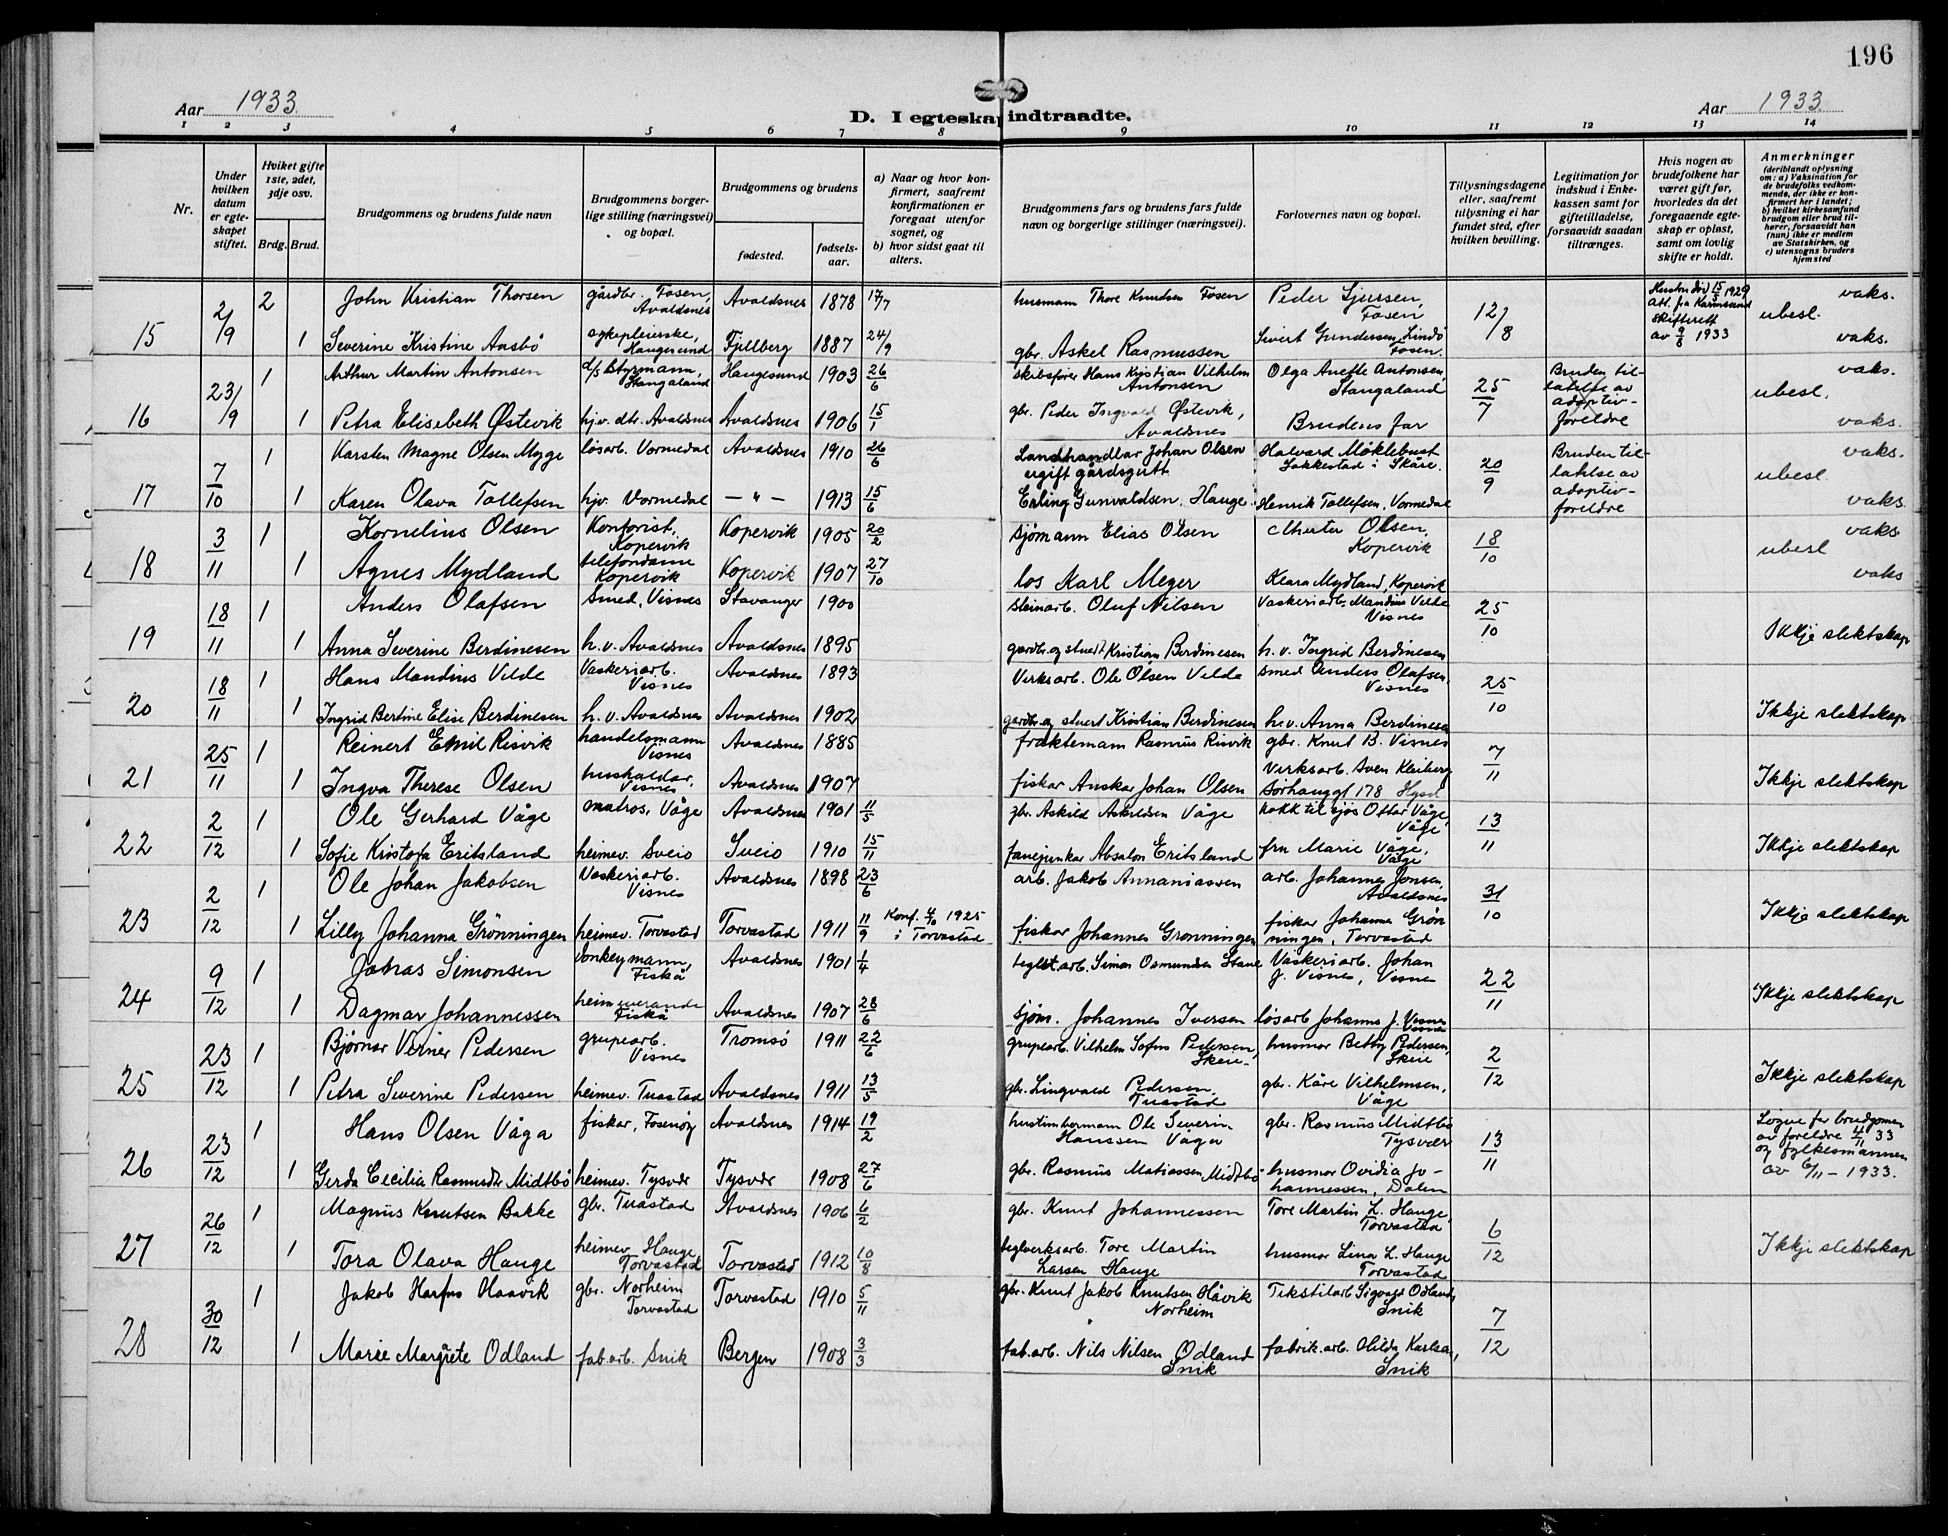 196
Aar 1933.
D. I egteskap indtraadte.
Aar 1933
1 2 3 4 5 6 7 8 9 10 11 12 13 14
Nr.
Under hvilken datum er egteskapet stiftet.
Hviket gifte 1ste, 2det, 3dje osv.
Brdg. Brud.
Brudgommens og brudens fulde navn
Brudgommens borgerlige stilling (næringsvei) og bopæl.
Brudgommens og brudens
fødested. fødselsaar.
a) Naar og hvor konfirmert, saafremt konfirmationen er foregaat utenfor sognet, og
b) hvor sidst gaat til alters.
Brudgommens fars og brudens fars fulde navn og borgerlige stillinger (næringsvei).
Forlovernes navn og bopæl.
Tillysningsdagene eller, saafremt tillysning ei har fundet sted, efter hvilken bevilling.
Legitimation for indskud i Enkekassen samt for giftetilladelse, forsaavidt saadan tiltrænges.
Hvis nogen av brudefolkene har været gift før, hvorledes da det foregaaende egteskap er opløst, samt om lovlig skifte er holdt.
Anmerkninger (deriblandt oplysning om: a) Vaksination for de brudefolks vedkommende, der ikke er konfirmert her i landet; b) hvilket kirkesamfund brudgom eller brud tilhører, forsaavidt han (hun) ikke er medlem av Statskirken, og c) utensogns bruders hjemsted
15 2/9 2 John Kristian Thorsen gårdbr. Fosen, Avaldsnes Avaldsnes 1878 17/7 husmann Thore Knudsen Fosen Peder Sjursen, Fosen 12/8 15/3 1929 Att. fra Karmsund skifterett av 9/8 1933 ubesl. vaks.
1 Severine Kristine Aasbö sykepleierske, Haugesund Fjellberg 1887 24/9 gbr. Askel Rasmussen Sivert Gundersen Lindö Fosen. vaks.
16 23/9 1 Arthur Martin Antonsen d/s styrmann, Stangaland Haugesund 1903 26/6 skibsfører Hans Kristian Vilhelm Antonsen Olga Anette Antonsen, Stangaland 25/7 Bruden tillatelse av adoptivforeldre ubesl. vaks.
1 Petra Elisebeth Østevik hjv. dtr. Avaldsnes Avaldsnes 1906 15/1 gbr. Peder Ingvald Østevik, Avaldsnes Brudens far vaks.
17 7/10 1 Karsten Magne Olsen Mygge løsarb. Vormedal Avaldsnes 1910 26/6 Landhandlar Johan Olsen Halvard Møklebust Sakkestad i Skåre. 20/9 Bruden tillatelse av adoptivforeldre ubesl. vaks.
1 Karen Olava Tollefsen hjv. Vormedal — " — 1913 15/6 ugift gårdsgutt Erling Gunvaldsen, Hauge Henrik Tollefsen, Vormedal vaks.
18 3/11 1 Kornelius Olsen Kontorist, Kopervik Kopervik 1905 20/2 sjømann Elias Olsen Olsen, Kopervik 18/10 ubesl vaks
1 Agnes Mydland telefondame Kopervik Kopervik 1907 27/10 los Karl Meyer Klara Mydland, Kopervik vaks
19 18/11 1 Anders Olafsen Smed, Visnes Stavanger 1900 steinarb. Oluf Nilsen Vaskeriarb. Mandius Velde Visnes 25/10
1 Anna Severine Berdinesen h.v. Avaldsnes Avaldsnes 1895 gardbr. og stuert Kristian Berdinesen h. v. Ingrid Berdinesen Ikkje slektskap
20 18/11 1 Hans Mandius Velde Vaskeriarb. Visnes Avaldsnes 1893 Verksarb. Ole Olsen Velde smed Anders Olafsen, Visnes 25/10
1 Ingrid Bertine Elise Berdinesen h.v. Avaldsnes Avaldsnes 1902 gardbr. og stuert Kristian Berdinesen h.v. Anna Berdinesen Ikkje slektskap
21 25/11 1 Reinert Emil Risvik handelsmann Visnes Avaldsnes 1885 fraktemann Rasmus Risvik gbr. Knut B. Visnes 7/11
1 Ingva Therese Olsen hushaldar, Visnes Avaldsnes 1907 fiskar Anskar Johan Olsen Verksarb. Sven Kleiberg Sørhauggt 178 Hgsd Ikkje slektskap
22 2/12 1 Ole Gerhard Våge matros, Våge Avaldsnes 1901 11/5 gbr. Askild Askildsen Våge kokk til sjøs Ottar Våge, Våge 13/11
1 Sofie Kristofa Eritsland heimev. Sveio Sveio 1910 15/11 fanejunkar Absalon Eritsland fru Marie Våge, Våge Ikkje slektskap
23 2/12 1 Ole Johan Jakobsen Vaskeriarb. Visnes Avaldsnes 1898 23/6 arb. Jakob Annaniassen arb. Johannes Jonsen, Avaldsnes 31/10
1 Lilly Johanna Grönningen heimev. Torvastad Torvastad 1911 11/9 Konf. 4/10 1925 i Torvastad fiskar Johannes Grønningen fiskar Johannes Grønningen, Torvastad Ikkje slektskap
24 9/12 1 Jonas Simonsen donkeymann, Fiskå Avaldsnes 1901 1/4 teglst.arb. Simon Osmundsen Stane Vaskeriarb. Johan J. Visnes, Visnes 22/11
1 Dagmar Johannessen heimeverande Fiskå Avaldsnes 1907 28/6 sjøm. Johannes Iversen løsarb Johannes J. Visnes Visnes Ikkje slektskap
25 23/12 1 Bjørnar Verner Pedersen grupearb. Visnes Tromsø 1911 22/6 grupearb. Vilhelm Sofus Pedersen, Skeie husmor Betty Pedersen, Skeie 2/12
1 Petra Severine Pedersen heimev. Tuastad Avaldsnes 1911 13/5 gbr. Lingvald Pedersen, Tuastad gbr. Kåre Vilhelmsen, Våge Ikkje slektskap
26 23/12 1 Hans Olsen Våga fiskar, Fosenøy Avaldsnes 1914 19/2 hustimbermann Ole Severin Hanssen Våga gbr. Rasmus Midtbö Tysvær 13/11 Løyve for brudgomen av foreldre 4/11 33 og fylkesmannen av 6/11 - 1933.
1 Gerda Cecilia Rasmusdtr Midtbö heimev. Tysvær Tysvær 1908 27/6 gbr. Rasmus Matiassen Midtbö husmor Ovidia Johannessen, Dalen
27 26/12 1 Magnus Knutsen Bakke gbr. Tuastad Avaldsnes 1906 6/2 gbr. Knut Johannessen Tore Martin L. Hauge, Torvastad 6/12
1 Tora Olava Hauge heimev. Hauge, Torvastad Torvastad 1912 10/8 teglverksarb. Tore Martin Larsen Hauge husmor Lina L. Hauge Torvastad Ikkje slektskap
28 30/12 1 Jakob Haavik gbr. Norheim Torvastad Torvastad 1910 5/11 gbr. Knut Jakob Knutsen Håvik Norheim Tekstilarb Sigvald Odland, Snik 7/12
1 Marie Margrete Odland fab.arb. Snik Bergen 1908 3/3 fab.arb. Nils Nilsen Odland Snik fabrik.arb. Hilda Karlsen, Snik